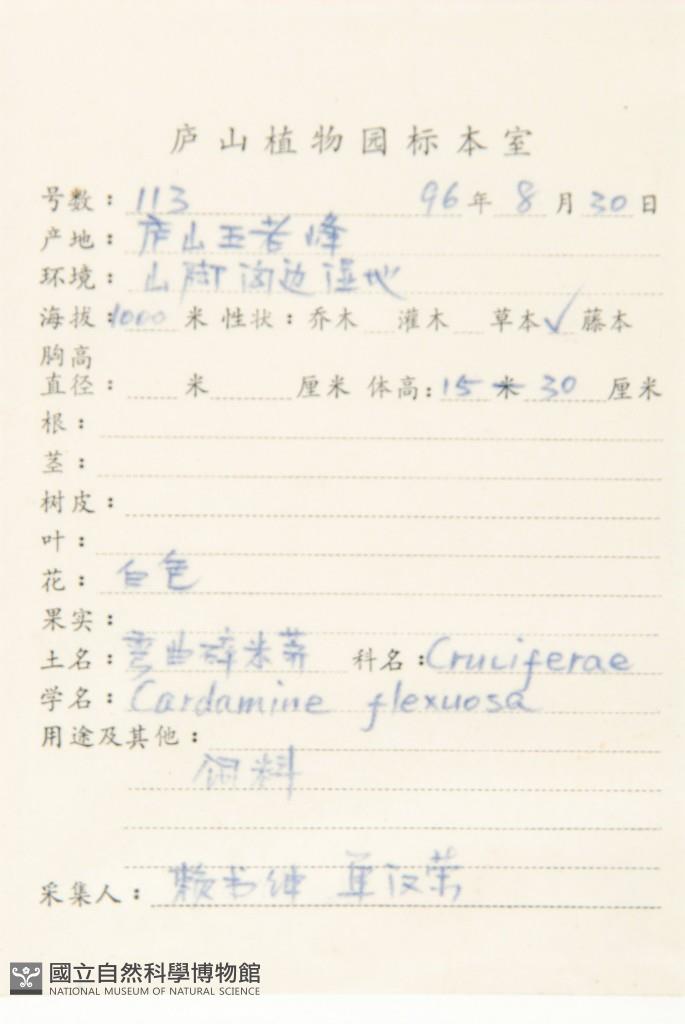 庐山植物园标本室
号数：113 96年8月30日
产地：庐山五老峰
环境：山脚沟边湿地
海拔：1000米 性状：乔木 灌木 草本✓ 藤本
胸高
直径： 米 厘米 体高：15米30厘米
根：
茎：
树皮：
叶：
花：白色
果实：
土名：弯曲碎米荠 科名：Cruciferae
学名：Cardamine flexuosa
用途及其他：
饲料
采集人：赖书绅 单汉荣
國立自然科學博物館
NATIONAL MUSEUM OF NATURAL SCIENCE